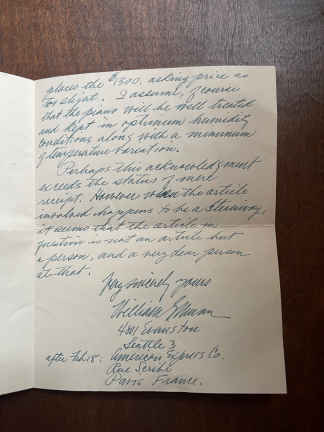 places the $1500. asking price as
too slight. I assume, of course
that the piano will be well treated
and kept in optimum humidity
conditions along with a minimum
of temperature variation.
Perhaps this acknowledgment
exceeds the status of mere
receipt. However when the article
involved happens to be a Steinway,
it seems that the article in
question is not an article but
a person, and a very dear person
at that.
Very sincerely yours
William
4111 Evanston
Seattle 3
after Feb 15: American Express Co.
Rue Scribe
Paris France.